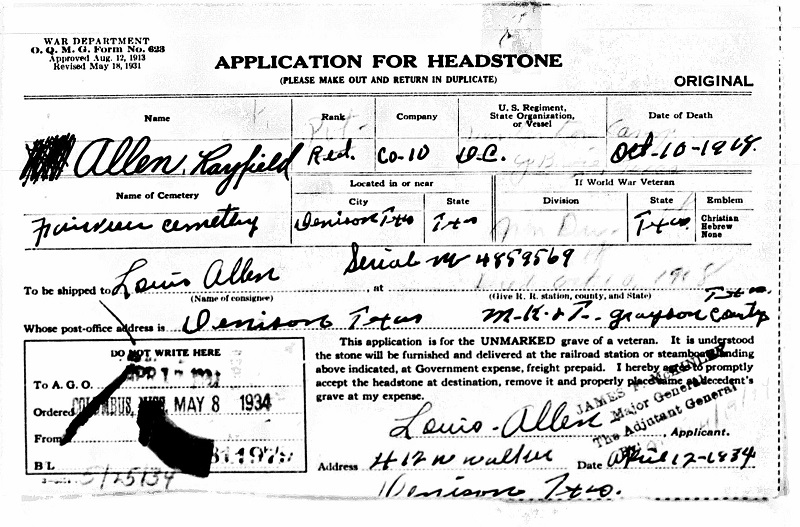 WAR DEPARTMENT
O. Q. M. G. Form No. 623
Approved Aug. 12, 1913
Revised May 18, 1931
APPLICATION FOR HEADSTONE
(PLEASE MAKE OUT AND RETURN IN DUPLICATE)
ORIGINAL
Name
Rank
Company
U. S. Regiment,
State Organization,
or Vessel
Date of Death
Allen, Rayfield
Co-10
D.C.
Oct-10-1918.
Name of Cemetery
Located in or near
City
State
If World War Veteran
Division
State
Emblem
Fairview cemetery
Denison Txs
Txs
Txs.
Christian
Hebrew
None
Serial No 4859569
To be shipped to Louis Allen at
(Name of consignee)
(Give R. R. station, county, and State)
Whose post-office address is Denison Texas
M-K-&T-. Grayson County
Texas.
DO NOT WRITE HERE
To A. G. O.
Ordered COLUMBUS, MISS. MAY 8 1934
From
B L
5/25/34
This application is for the UNMARKED grave of a veteran. It is understood
the stone will be furnished and delivered at the railroad station or steamboat landing
above indicated, at Government expense, freight prepaid. I hereby agree to promptly
accept the headstone at destination, remove it and properly place same at decedent's
grave at my expense.
JAMES F. McKINLEY
Major General
The Adjutant General
Louis-Allen, Applicant.
Address 412 W Walker Date April 12-1934
Denison Txs.